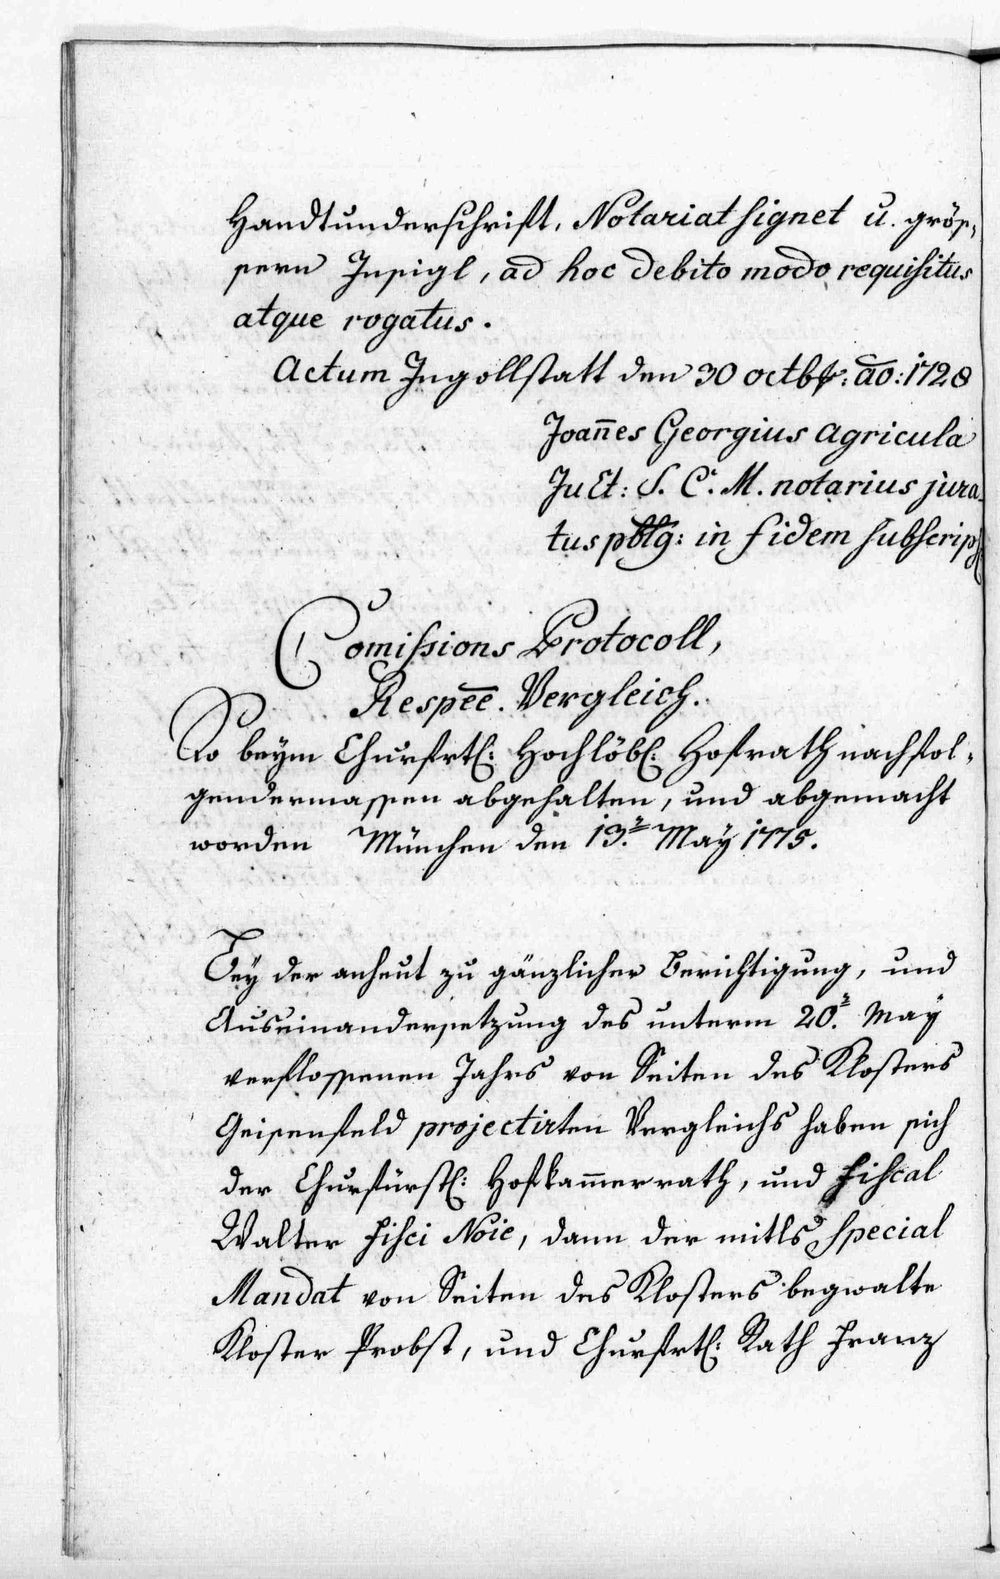 Handtunderschrifft, Notariat signet u. grös,
sern Insigl, ad hoc debito modo requisitus
atque rogatus.
Actum Ingollstatt den 30 octbr: ao: 1728
Joan̄es Georgius Agricula
Ju Et: S. C. M. notarius jura-
tus pblg: in fidem subscrips:
Comissions Protocoll,
Respēē. Vergleich.
So beÿm Churfrtl: Hochlöbl: Hofrath nachfol-
gendermassen abgehalten, und abgemacht
worden München den 13.ᵗ May 1775.
Beÿ der anheut zu gänzlicher Berichtigung, und
Auseinandersetzung des unterm 20.ᵗ Maÿ
verflossenen Jahrs von Seiten des Klosters
Geisenfeld projectirten Vergleichs haben sich
der Churfürstl: Hofkam̄errath, und Fiscal
Walter Fisci Noie, dann der mitls Special
Mandat von Seiten des Klosters begwalte
Kloster Probst, und Churfrtl: Rath Franz